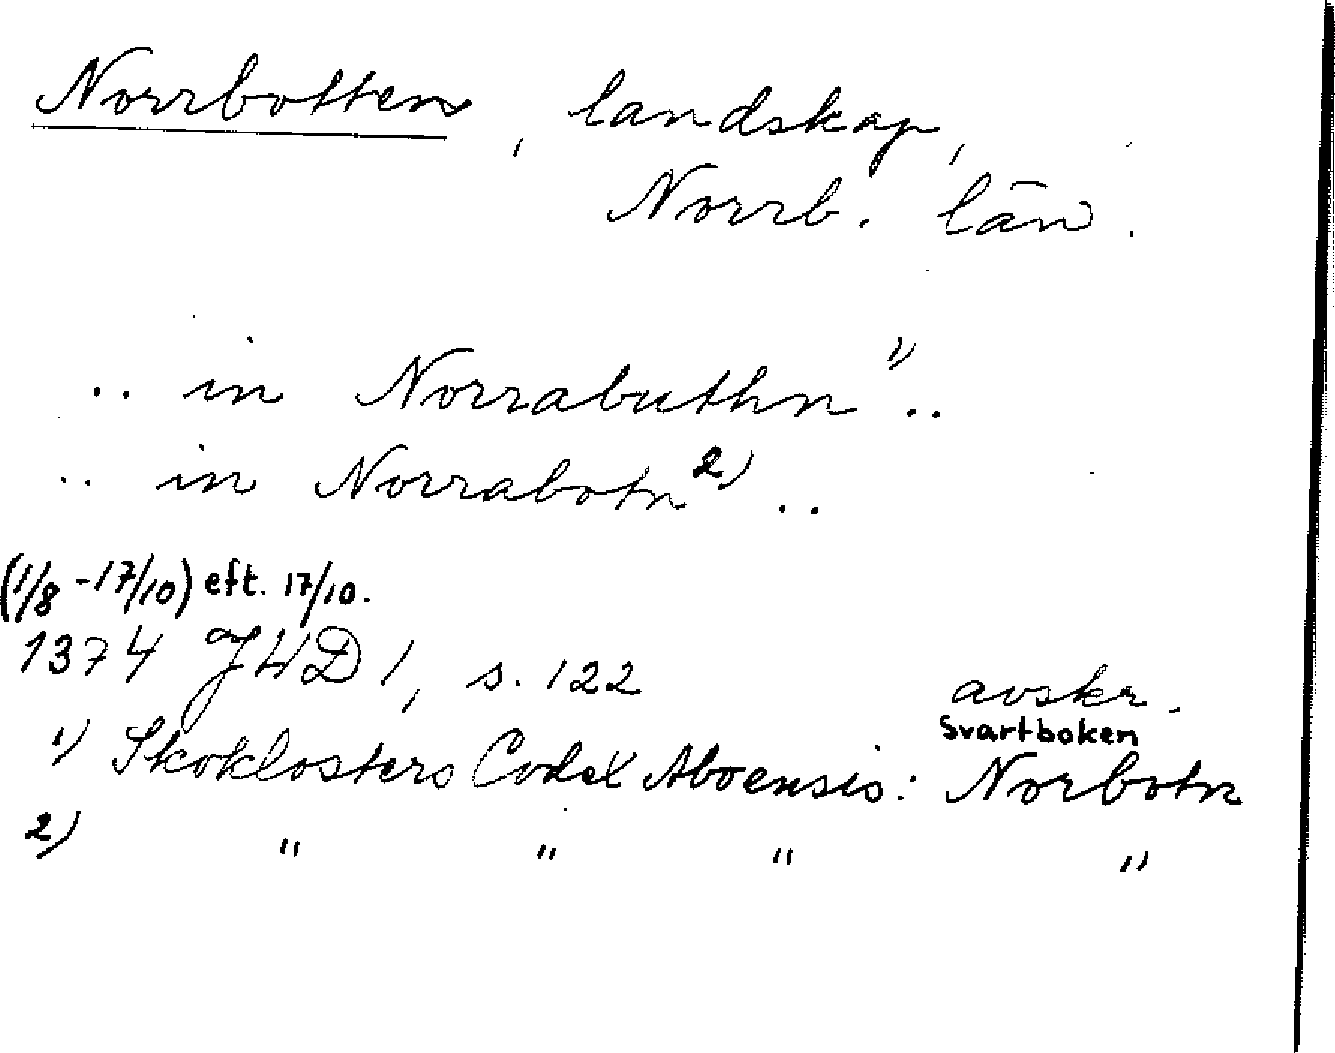 Norrbotten, landskap,
Norrb. län.
.. in Norrabuthn 1) ..
.. in Norrabotn 2) ..
(1/8 - 17/10) eft. 17/10.
1374 JHD 1, s. 122
avskr.
Svartboken
1) Skoklosters Codex Aboensis: Norbotn
2) " " " "